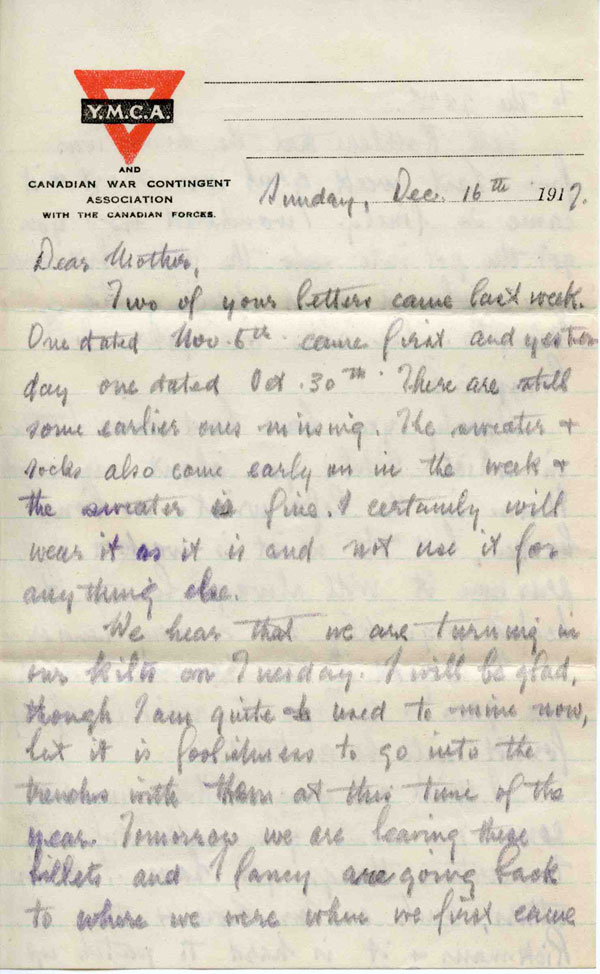 Y.M.C.A.
AND
CANADIAN WAR CONTINGENT
ASSOCIATION
WITH THE CANADIAN FORCES.
Sunday, Dec. 16th 1917.
Dear Mother,
Two of your letters came last week.
One dated Nov. 6th came first and yester
day one dated Oct. 30th. There are still
some earlier ones missing. The sweater +
socks also came early on in the week +
the sweater is fine. I certainly will
wear it as it is and not use it for
anything else.
We hear that we are turning in
our kilts on Tuesday. I will be glad,
though I am quite used to mine now,
but it is foolishness to go into the
trenches with them at this time of the
year. Tomorrow we are leaving these
billets and I fancy are going back
to where we were when we first came